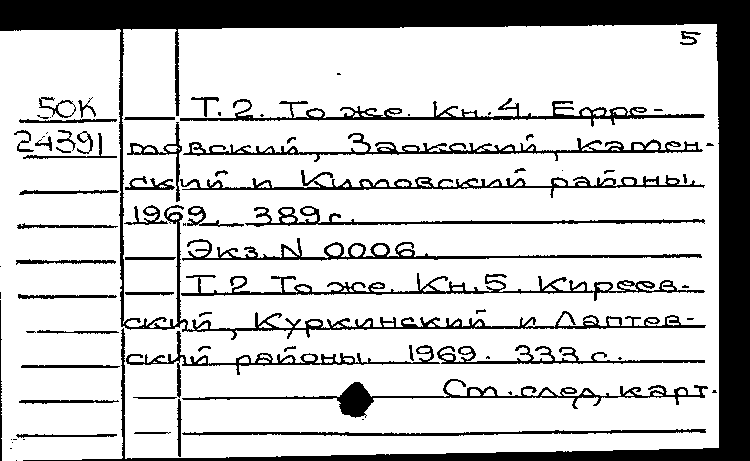 5
50К Т.2. То же. Кн.4. Ефре-
24391 мовский, Заокский, Камен-
ский и Кимовский районы.
1969. 389с.
Экз. N 0006.
Т.2 То же. Кн.5. Киреев-
ский, Куркинский и Лаптев-
ский районы. 1969. 333 с.
См. след. карт.